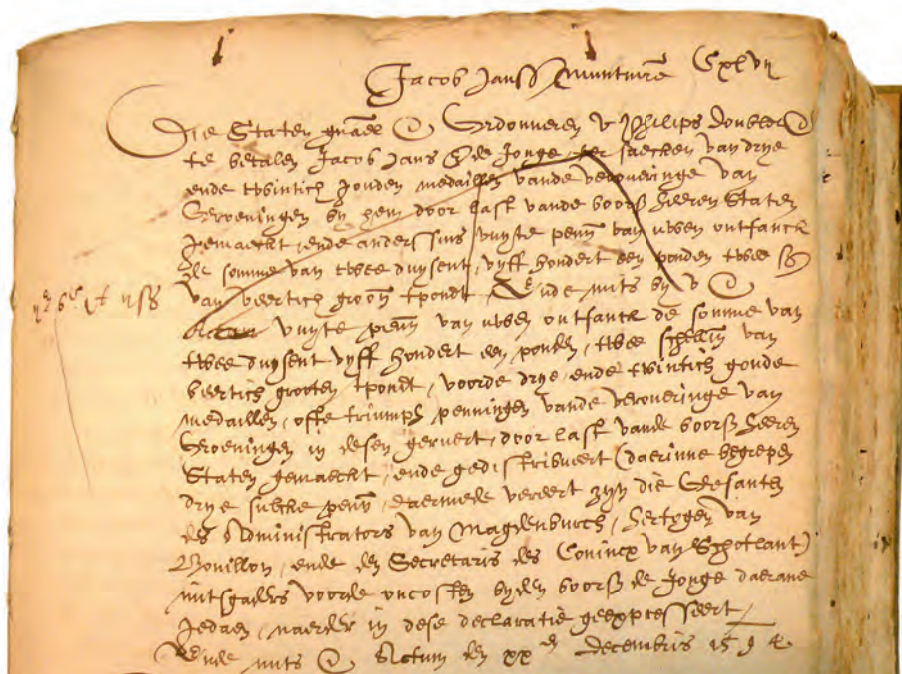 Jacob Janss muntmre Cxlvij
Die Staten gnael Ordonneren v Philips Doublet
te betalen Jacob Jans de Jonge ter saecken van drye
ende twintich gouden medaillen vande veroveringe van
Groeningen by hem door last vande voorss heeren Staten
gemaeckt, ende anderssins vuyte penn van uwen ontfanck
de somme van twee duysent vyff hondert een ponden twee ss
van veertich groon tpondt. Ende mits by v
vuyte penn van uwen ontfanck de somme van
twee duysent vyff hondert een ponden, twee schellin van
veertich grooten tpondt, voorde drye ende twintich goude
medaillen, ofte triumph penningen vande veroveringe van
Groeningen in desen geruert, door last vande voorss heeren
Staten gemaeckt, ende gedistribueert (daerinne begrepen
drye sulcke penn, daermede vereert zyn die Gesanten
des Administrators van Magdenburch, Hertogen van
Bouillon, ende den Secretaris des Conincx van Schotlant)
mitsgaders voorde oncosten byden voorss de Jonge daerane
gedaen, naerder in dese declaratie geexpresseert,
Ende mits Actum den xx en Decembris 1594